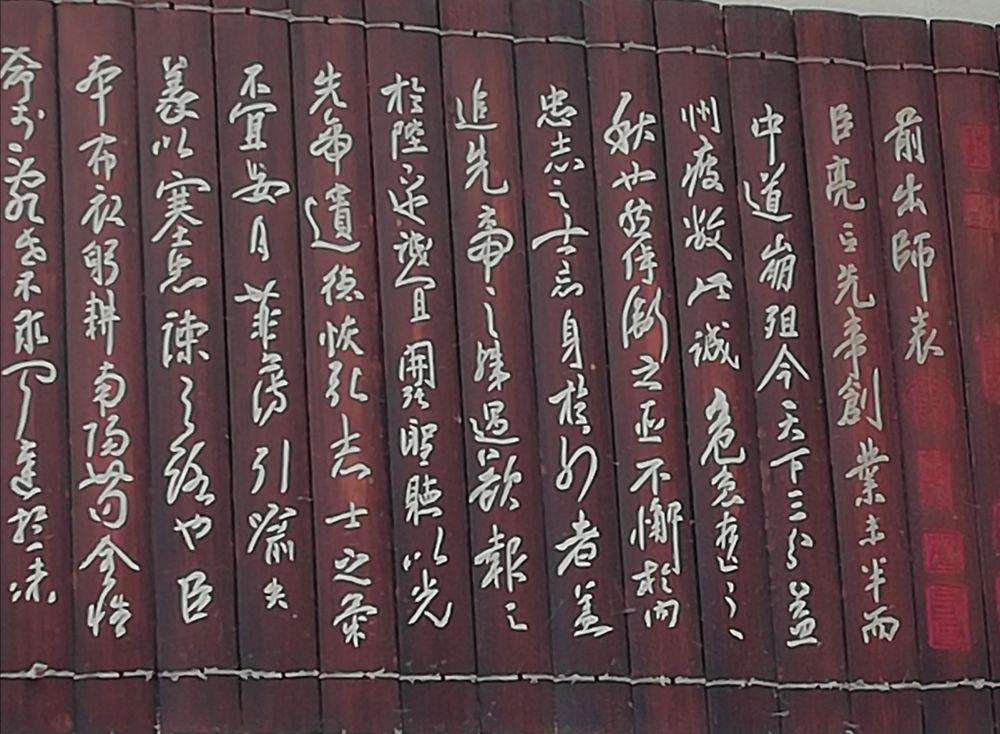 前出師表
臣亮言先帝創業未半而
中道崩殂今天下三分益
州疲敝此誠危急存亡之
秋也然侍衛之臣不懈於內
忠志之士忘身於外者蓋
追先帝之殊遇欲報之
於陛下也誠宜開張聖聽以光
先帝遺德恢弘志士之氣
不宜妄自菲薄引喻失
義以塞忠諫之路也臣
本布衣躬耕南陽苟全性
命於亂世不求聞達於